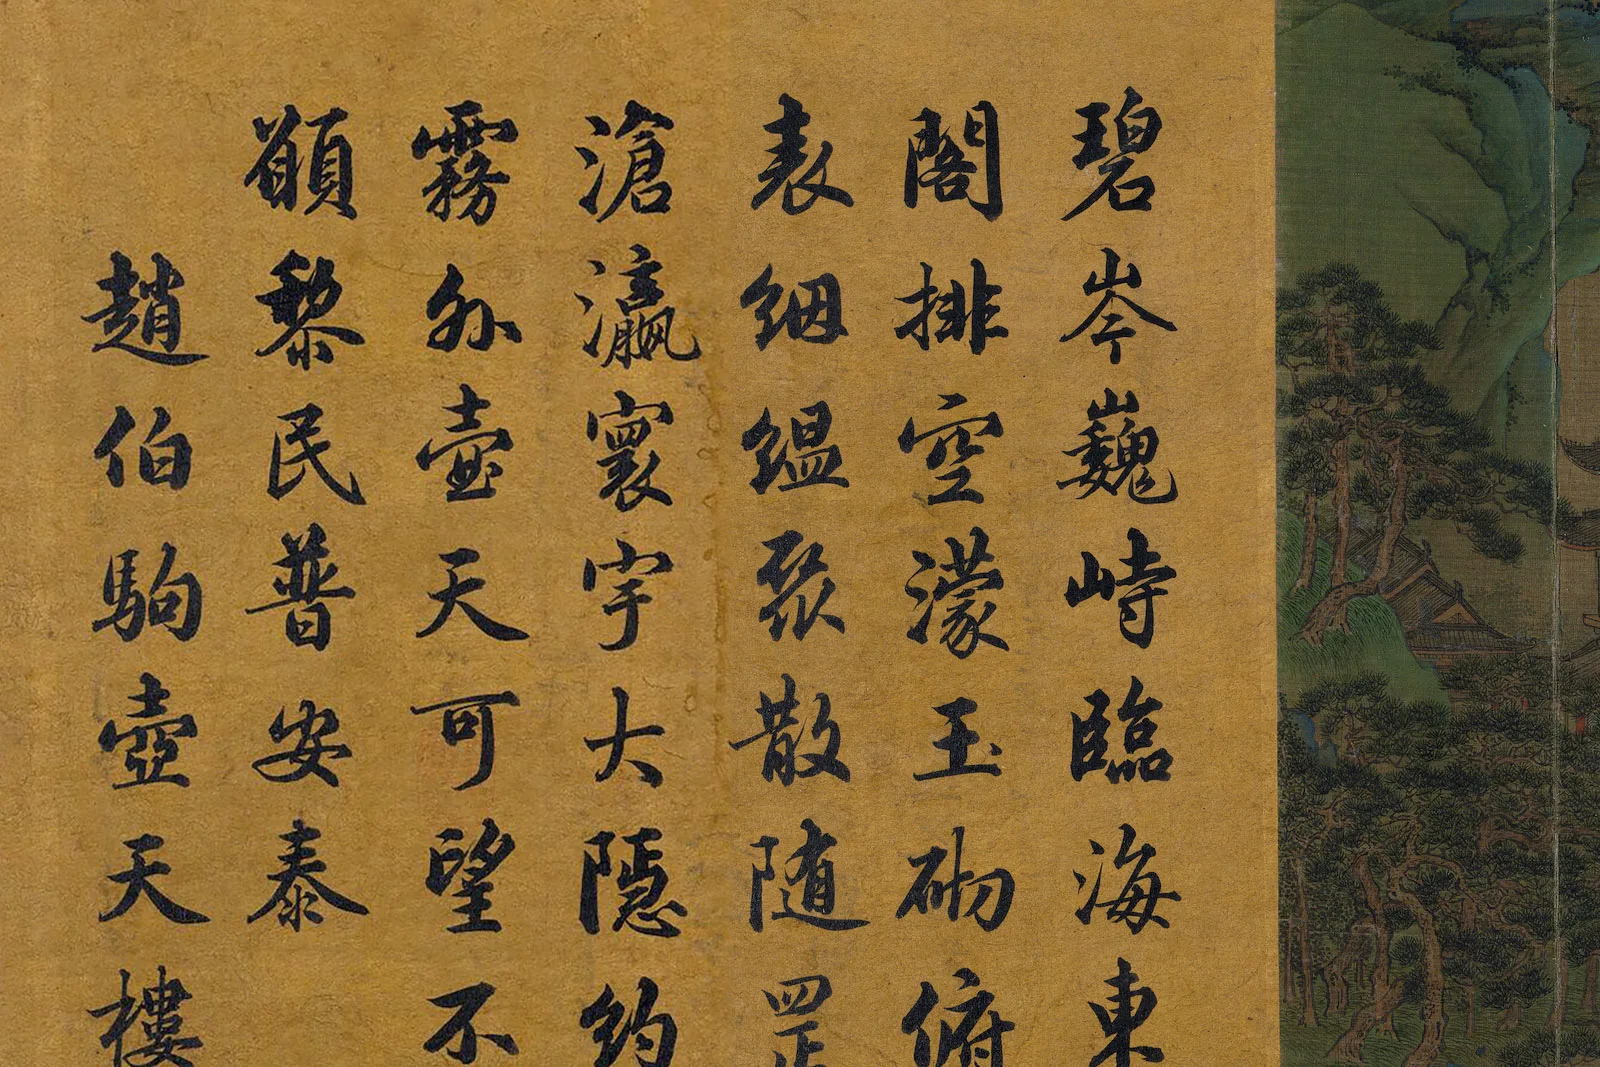 碧岑巍峙臨海東
閣排空濛玉砌俯
表細縕聚散随罡
滄瀛寰宇大隱約
霧外壺天可望不
願黎民普安泰
趙伯駒壺天樓